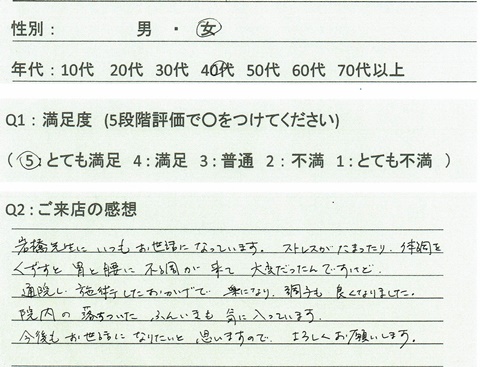 性別： 男 ・ 女
年代：10代 20代 30代 40代 50代 60代 70代以上
Q1：満足度 (5段階評価で〇をつけてください)
（ 5：とても満足 4：満足 3：普通 2：不満 1：とても不満 ）
Q2：ご来店の感想
岩橋先生に いつも お世話に なっています。 ストレスが たまったり、体調を
くずすと 胃と腰に 不調が 来て 大変だったんですけど、
通院し 施術したおかげで 楽になり、調子も 良くなりました。
院内の 落ちついた ふんいきも 気に 入っています。
今後も お世話に なりたいと 思いますので よろしくお願いします。